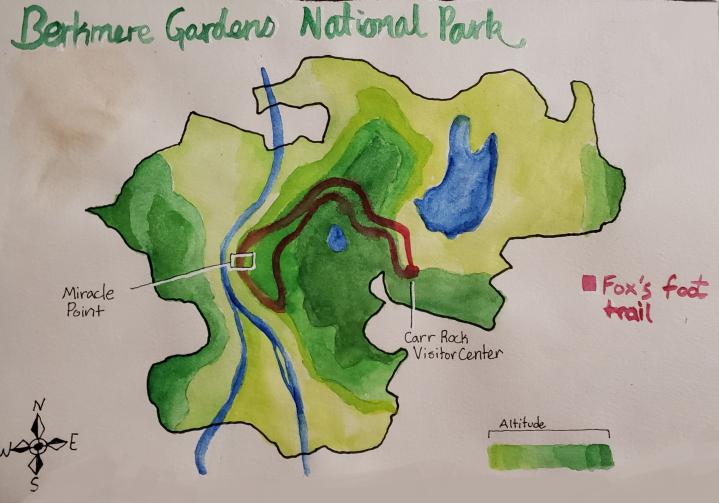 Berkmere Gardens National Park
Miracle
Point
Carr Rock
Visitor Center
Fox's foot
trail
N
W E
S
Altitude